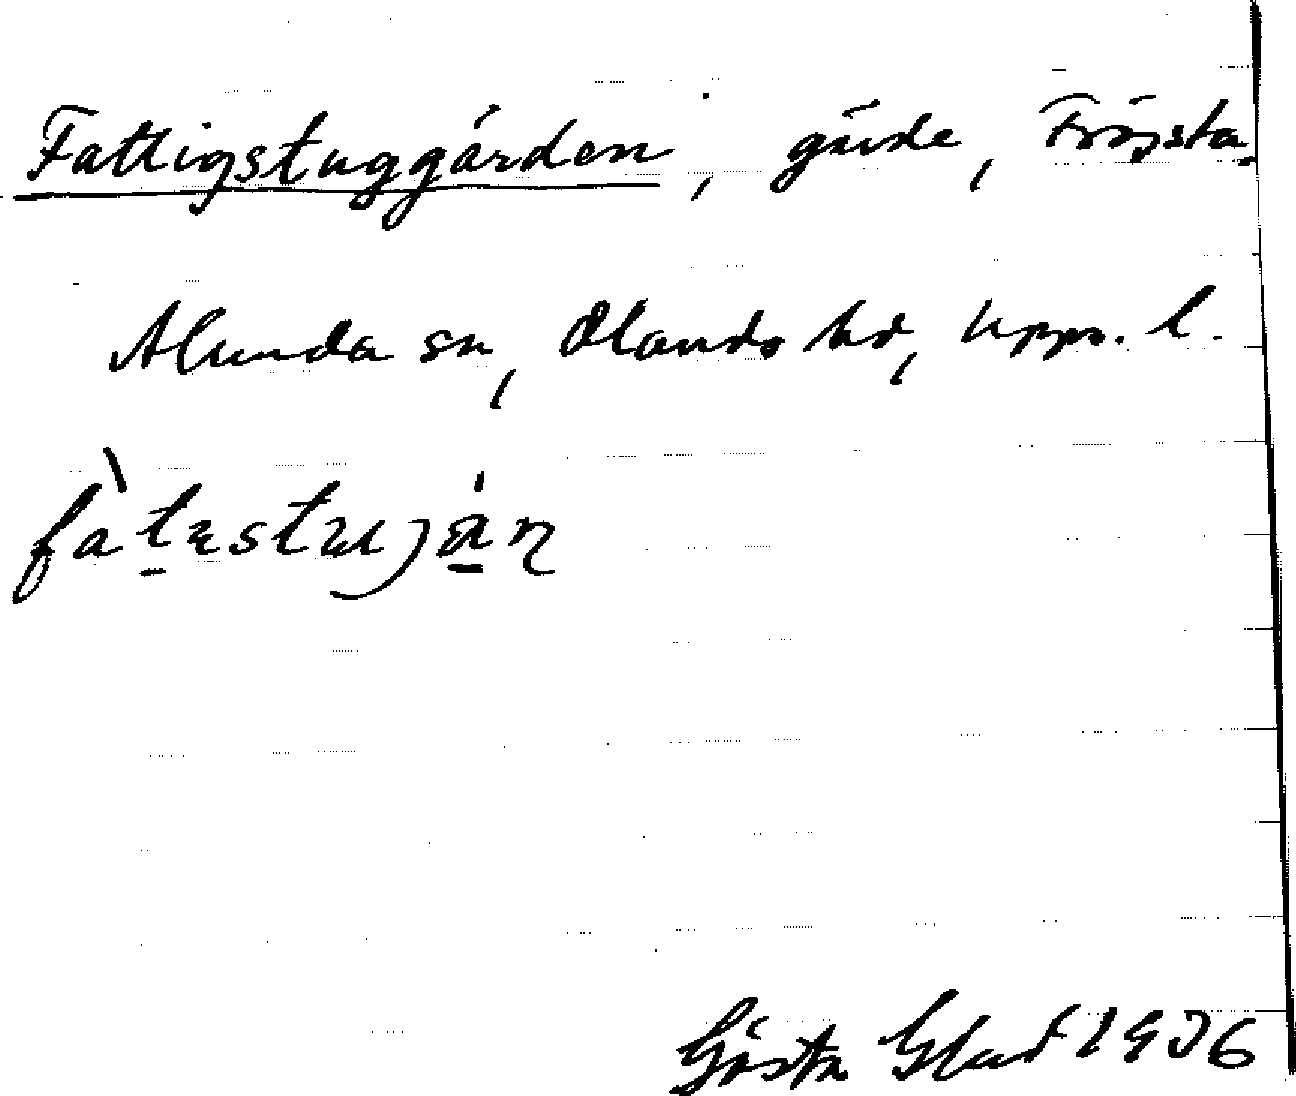 Fattigstuggården, gärde, Fröjsta.
Alunda sn, Olands hd, Upps. l.
Gösta Glad 1936